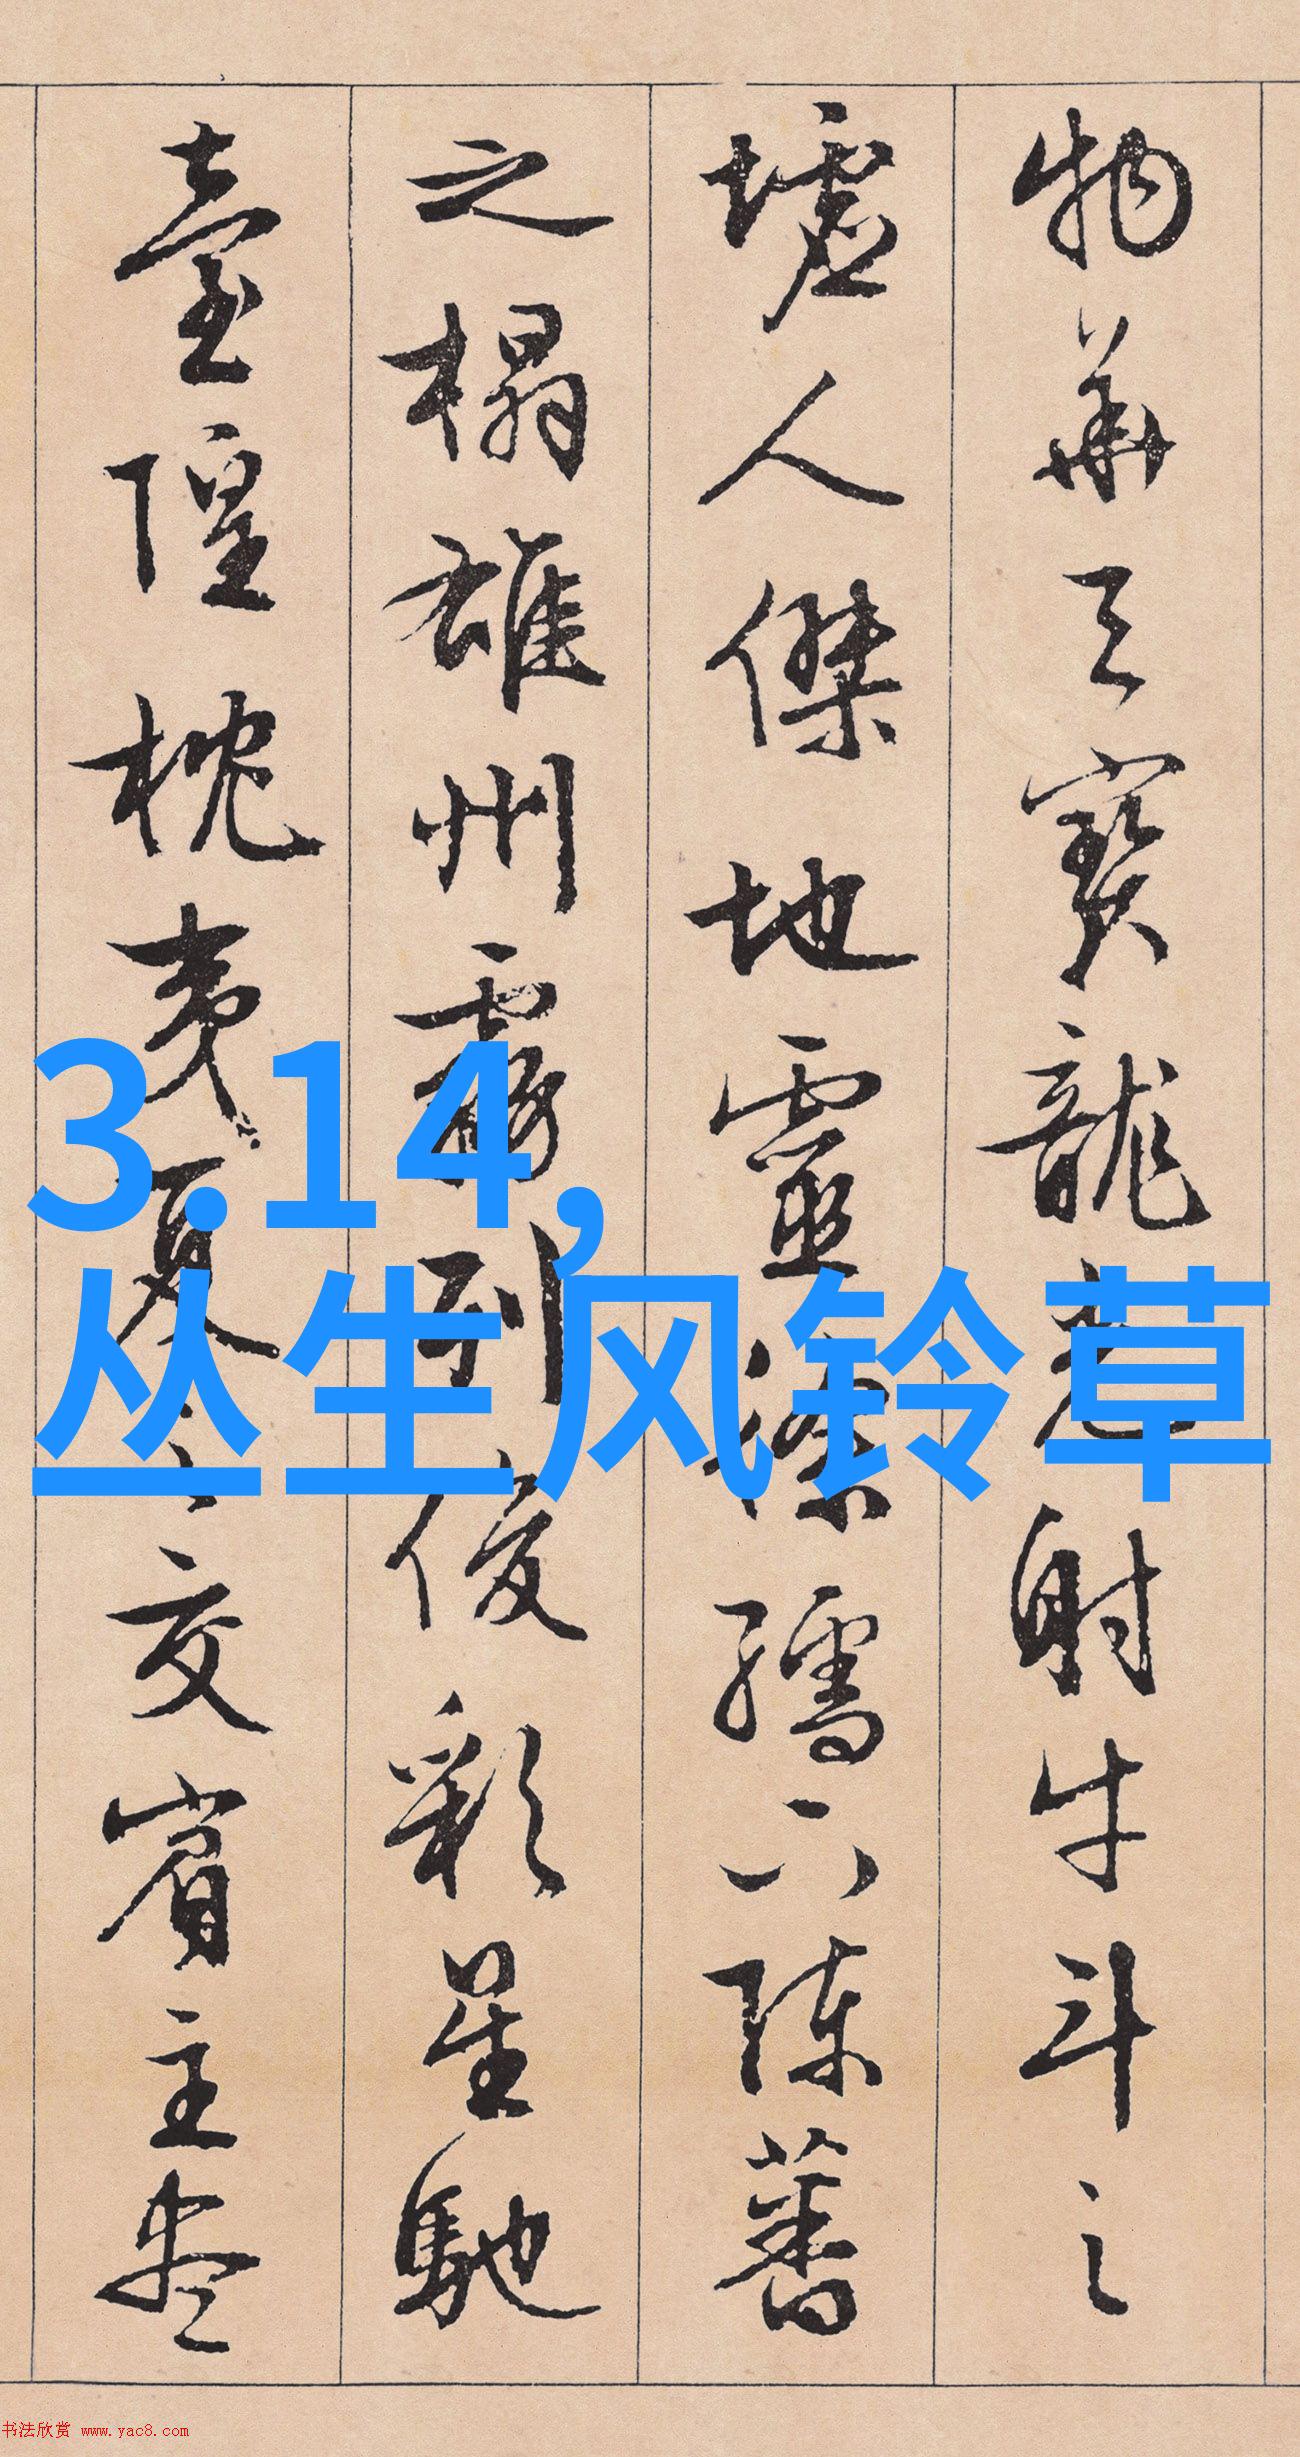 物華天寶龍光射牛斗之
墟人傑地靈徐孺下陳蕃
之榻雄州霧列俊彩星馳
臺隍枕夷夏之交賓主盡
3.14,
丛生风铃草
书法欣赏 www.yac8.com